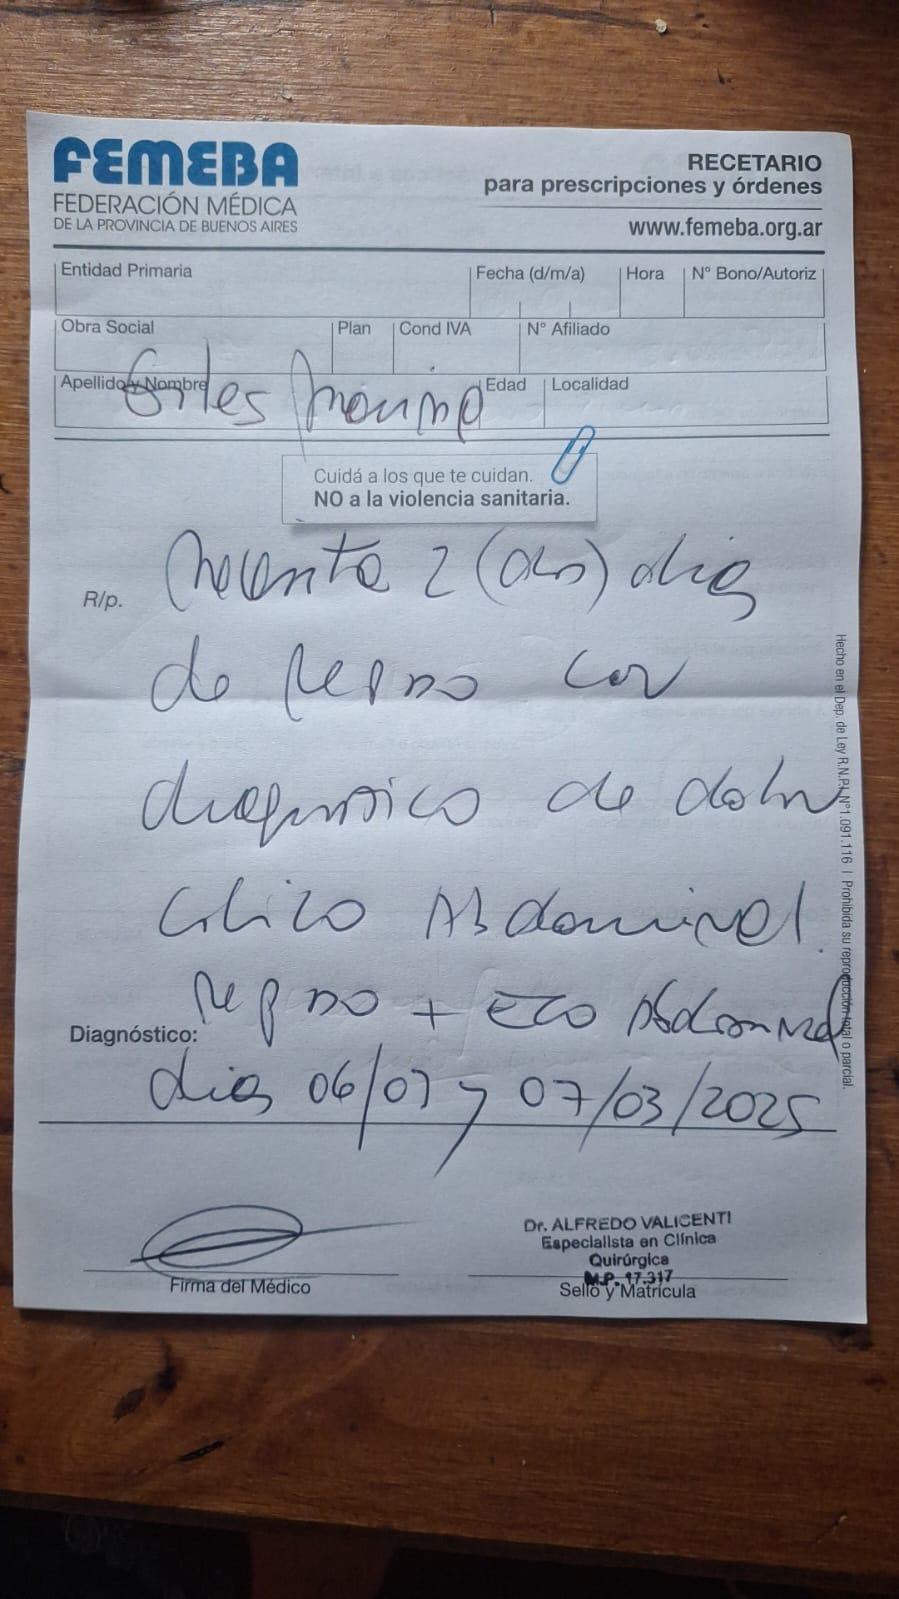 FEMEBA
FEDERACIÓN MÉDICA
DE LA PROVINCIA DE BUENOS AIRES
RECETARIO
para prescripciones y órdenes
www.femeba.org.ar
Entidad Primaria
Fecha (d/m/a)
Hora
N° Bono/Autoriz
Obra Social
Plan
Cond IVA
N° Afiliado
Apellido y Nombre
Edad
Localidad
Giles
Cuidá a los que te cuidan.
NO a la violencia sanitaria.
R/p.
2 (dos) dias
de reposo con
diagnostico de dolor
colico Abdominal.
reposo + Eco Abdominal
Diagnóstico:
dias 06/03 y 07/03/2025
Hecho en el Dep. de Ley R.N.P.I. N°1.091.116 | Prohibida su reproducción total o parcial.
Firma del Médico
Dr. ALFREDO VALICENTI
Especialista en Clínica
Quirúrgica
M.P. 17.317
Sello y Matrícula